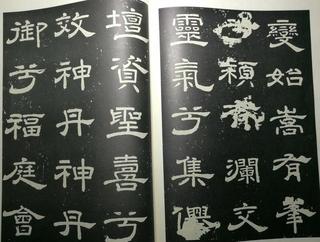 變始嵩有
瀾文
靈氣兮集
壇資聖喜兮
效神丹神丹
御兮福庭會